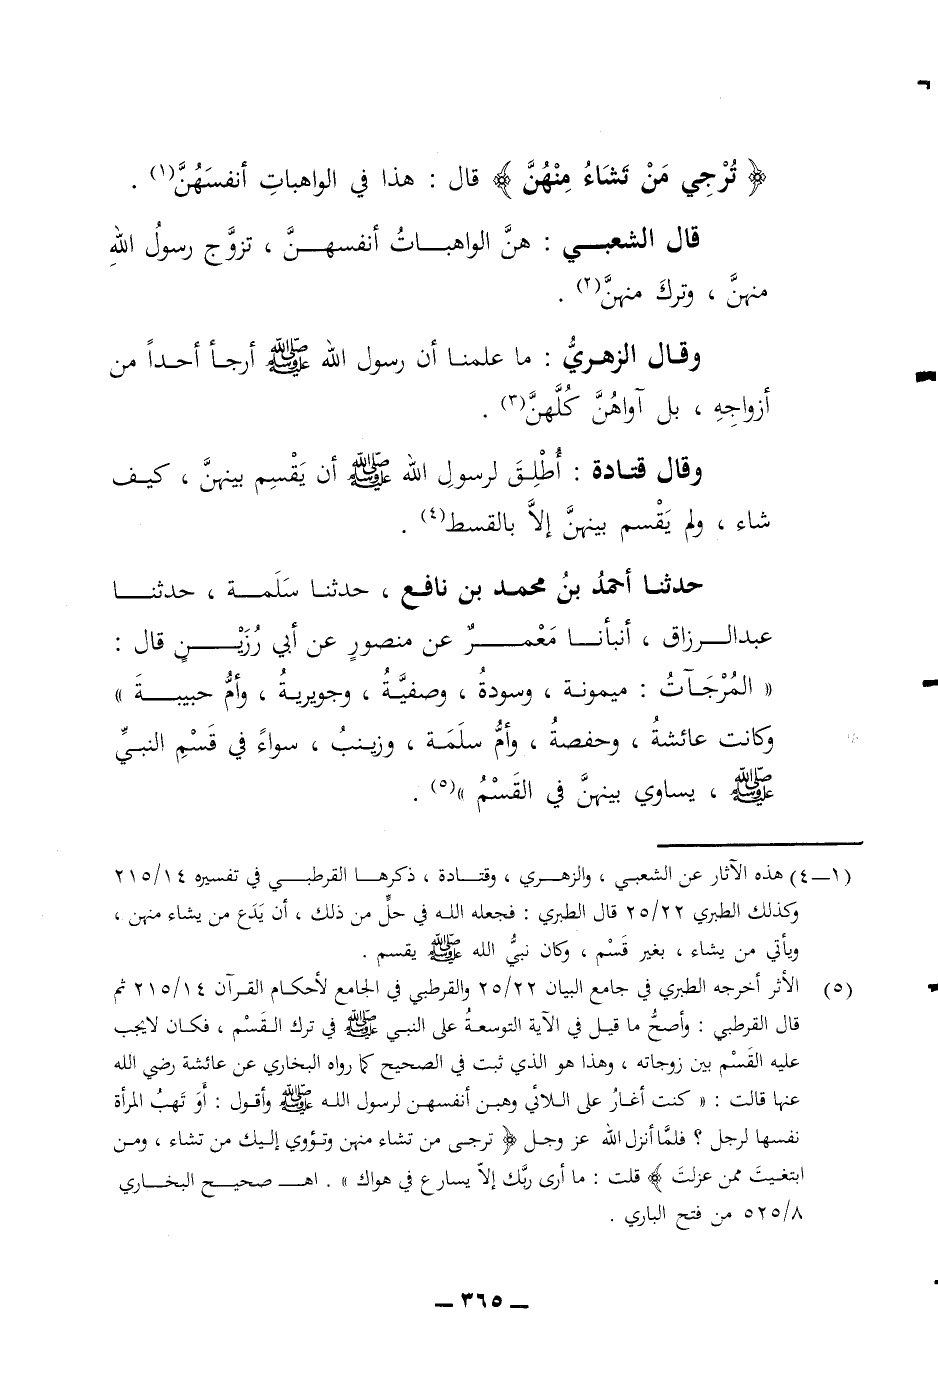 ﴿ تُرْجِي مَنْ تَشَاءُ مِنْهُنَّ ﴾ قال : هذا في الواهباتِ أنفسَهُنَّ(١) .
قال الشعبـي : هنَّ الواهبـاتُ أنفسهـنَّ ، تزوَّج رسولُ اللهِ
منهنَّ ، وتركَ منهنَّ(٢) .
وقـال الزهـريُّ : ما علمنـا أن رسول الله ﷺ أرجـأ أحـداً من
أزواجِهِ ، بل آواهُنَّ كُلَّهنَّ(٣) .
وقال قتـادة : أُطْلِقَ لرسولِ الله ﷺ أن يَقْسِم بينهنَّ ، كيـف
شاء ، ولم يَقْسم بينهنَّ إلاَّ بالقسط(٤) .
حدثنـا أحمدُ بنُ محمـد بن نافـع ، حدثنـا سَلَمـة ، حدثنـا
عبدالـرزاق ، أنبأنـا مَعْمـرٌ عن منصورٍ عن أبي رُزَيْـنٍ قال :
« المُرْجَـآتُ : ميمونة ، وسودةُ ، وصفيَّةُ ، وجويريةُ ، وأمُّ حبيبـةَ »
وكانت عائشةُ ، وحفصةُ ، وأمُّ سلَمَة ، وزينبُ ، سواءً في قَسْمِ النبيِّ
ﷺ ، يساوي بينهنَّ في القَسْمُ »(٥) .
(١ــ٤) هذه الآثار عن الشعبـي ، والزهـري ، وقتـادة ، ذكرهـا القرطبـي في تفسيره ٢١٥/١٤
وكذلك الطبري ٢٥/٢٢ قال الطبري : فجعله اللـه في حلٍّ من ذلك ، أن يَدَع من يشاء منهن ،
ويأتي من يشاء ، بغير قَسْم ، وكان نبيُّ الله ﷺ يقسم .
(٥) الأثر أخرجه الطبري في جامع البيان ٢٥/٢٢ والقرطبي في الجامع لأحكام القـرآن ٢١٥/١٤ ثم
قال القرطبي : وأصحُّ ما قيـل في الآية التوسعـةُ على النبـي ﷺ في ترك القَسْم ، فكـان لايجب
عليه القَسْم بين زوجاته ، وهذا هو الذي ثبت في الصحيح كما رواه البخاري عن عائشة رضي الله
عنها قالت : « كنت أغارُ على الـلائي وهبـن أنفسهن لرسول اللـه ﷺ وأقول : أَوَ تَهبُ المرأة
نفسها لرجل ؟ فلمَّا أنزل الله عز وجـل ﴿ ترجـى من تشاء منهن وتـؤوي إليـك من تشاء ، ومـن
ابتغيـتَ ممن عزلتَ ﴾ قلت : ما أرى ربَّك إلاّ يسارع في هواك » . اهــ صحيـح البخـاري
٥٢٥/٨ من فتح الباري .
ــ ٣٦٥ ــ